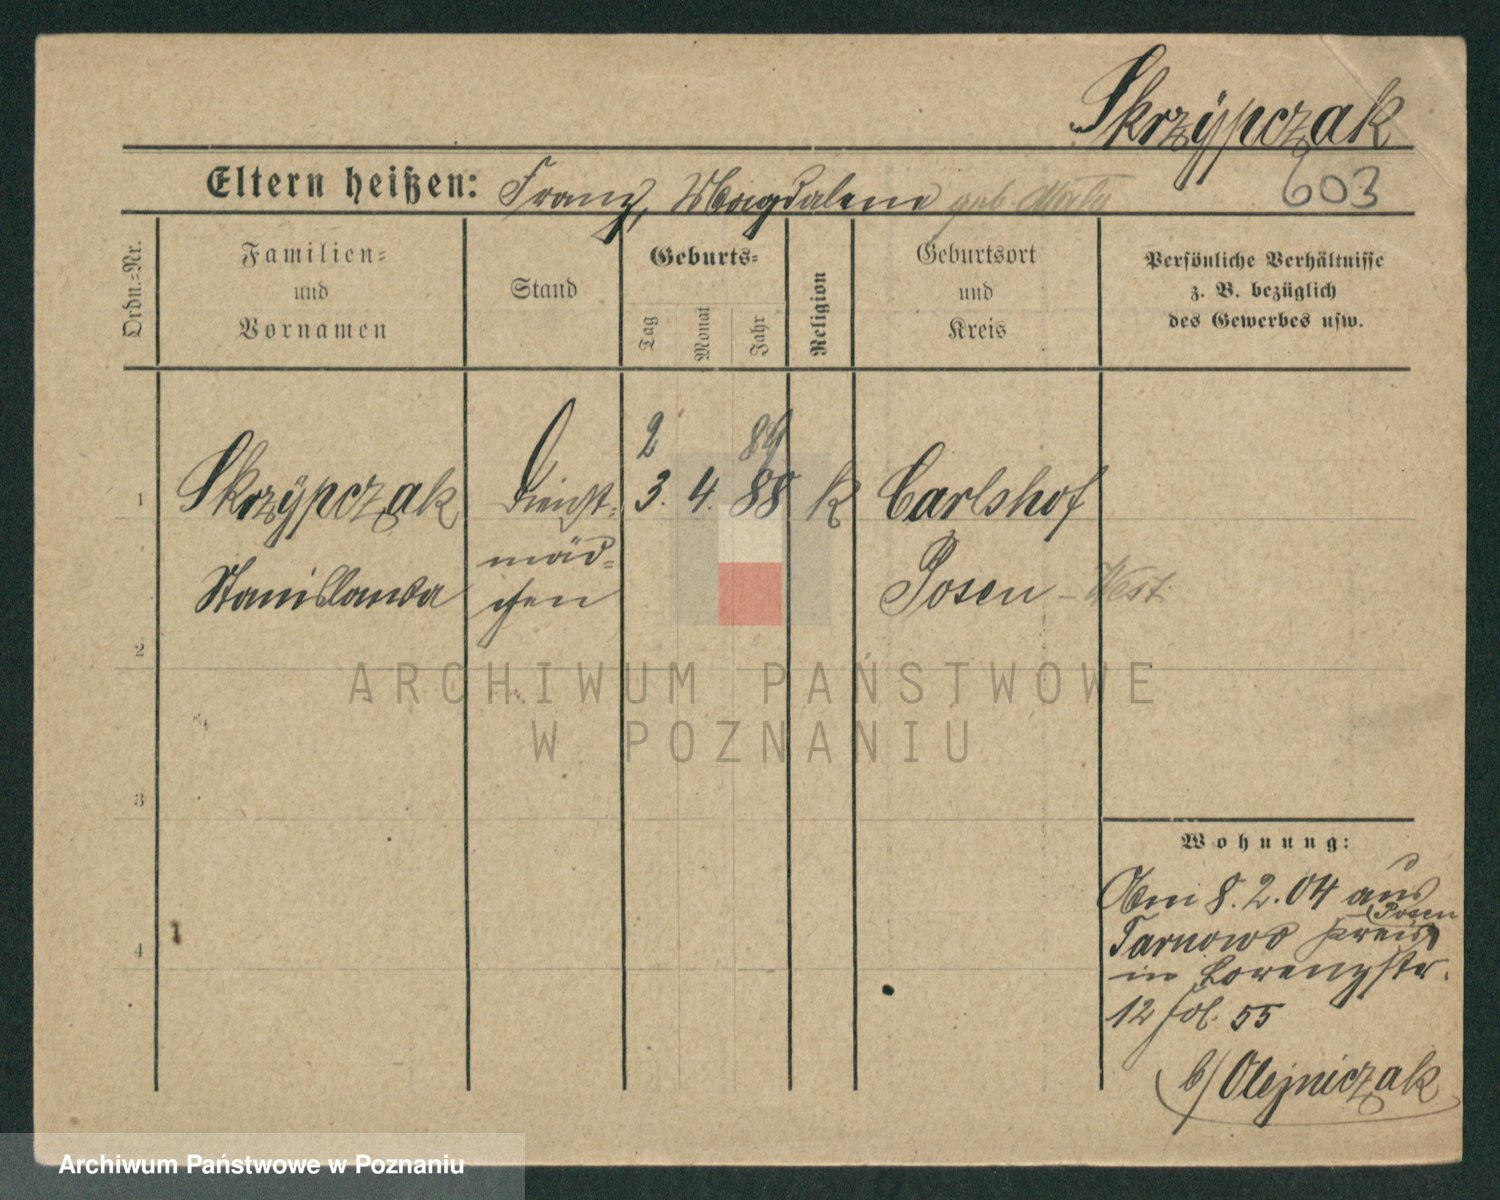 Skrzÿpczak
603
Eltern heißen: Franz, Magdalene geb.
Ordn.=Nr.
Familien=
und
Vornamen
Stand
Geburts=
Tag
Monat
Jahr
Religion
Geburtsort
und
Kreis
Persönliche Verhältnisse
z. B. bezüglich
des Gewerbes usw.
2 89
1 Skrzÿpczak Dienst= 3. 4. 88 k Carlshof
Stanislawa mäd= Posen - West
chen
2
3
4
Wohnung:
Am 8.2.04 aus
Tarnowo Kreis Posen
in Lorenzstr.
12 fol. 55
b/ Olejniczak
ARCHIWUM PAŃSTWOWE
W POZNANIU
Archiwum Państwowe w Poznaniu